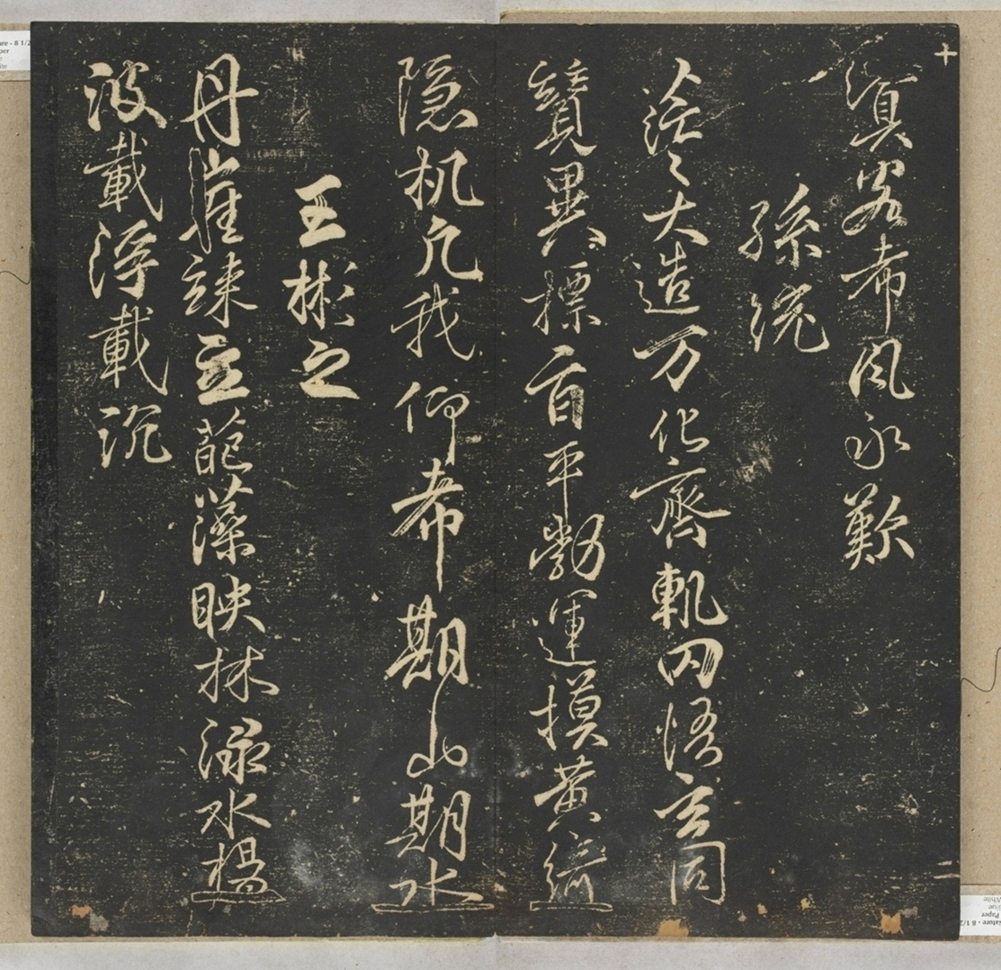 客希風永歎
孫統
茫々大造万化齊軌罔悟玄同
競異標旨平勃運摸黃綺
隱机凡我仰希期山期水
王彬之
丹崖竦立葩藻映林淥水揚
波載浮載沉